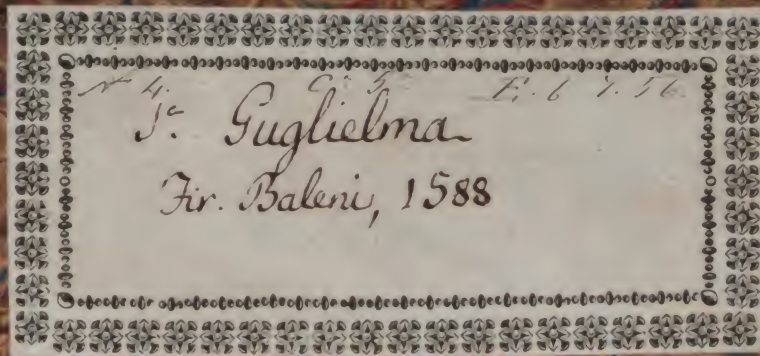 N 4. C. 5. E. 6. 7. 56.
Sᵃ Guglielma
Fir. Baleni, 1588